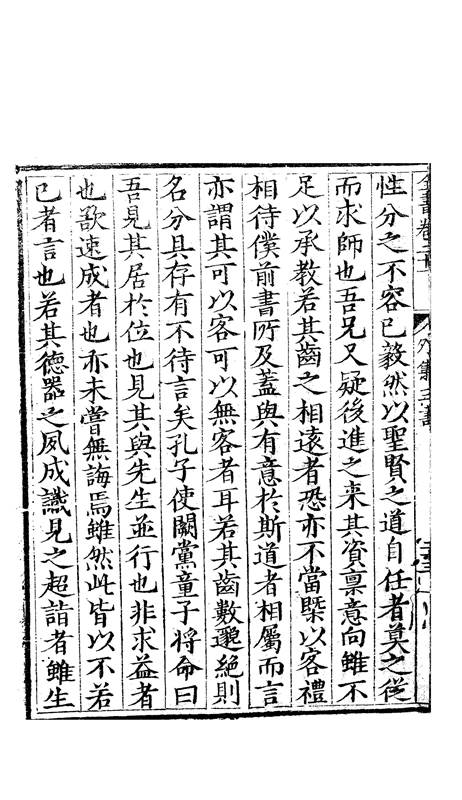 性分之不容已毅然以聖賢之道自任者莫之從
而求師也吾兄又疑後進之来其資稟意向雖不
足以承教若其齒之相遠者恐亦不當槩以客禮
相待僕前書所及蓋與有意於斯道者相屬而言
亦謂其可以客可以無客者耳若其齒數邈絕則
名分具存有不待言矣孔子使闕黨童子將命曰
吾見其居於位也見其與先生並行也非求益者
也欲速成者也亦未嘗無誨焉雖然此皆以不若
己者言也若其德器之夙成識見之超詣者雖生